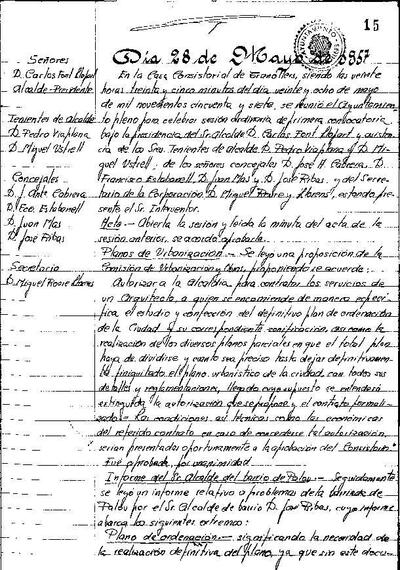 15
AYUNTAMIENTO
Dia 28 de Mayo de 1957
Señores
D. Carlos Font Llopart
Alcalde-Presidente
Tenientes de alcalde
D. Pedro Viaplana
D. Miguel Ustrell
Concejales
D. J. Ante Cabrera
D. Fco. Estabanell
D. Juan Mas
D. José Ribas
Secretario
D. Miguel Llorens
En la Casa Consistorial de Granollers, siendo las veinte
horas treinta y cinco minutos del dia veinte y ocho de mayo
de mil novecientos cincuenta y siete, se reunió el Ayuntamien-
to pleno para celebrar sesión ordinaria de primera convocatoria
bajo la presidencia del Sr. alcalde D. Carlos Font Llopart, y asisten-
cia de los Sres. Tenientes de alcalde D. Pedro Viaplana y D. Mi-
guel Ustrell; de los señores concejales D. José A. Cabrera, D.
Francisco Estabanell, D. Juan Mas y D. José Ribas, y del Secre-
tario de la Corporación D. Miguel y Llorens, estando pre-
sente el Sr. Interventor.
Acta.- Abierta la sesión y leida la minuta del acta de la
sesión anterior, se acordó aprobarla.
Planos de Urbanización.- Se leyo una proposición de la
Comision de Urbanización y Obras, proponiendo se acuerde:
Autorizar a la alcaldia para contratar los servicios de
un Arquitecto, a quien se encomiende de manera especí-
fica el estudio y confección del definitivo plan de ordenación
de la Ciudad y su correspondiente zonificación, asi como la
realización de los diversos planos parciales en que el total plan
haya de dividirse y cuanto sea preciso hasta dejar definitivamen-
te finiquitado el plano urbanístico de la ciudad, con todos sus
detalles y reglamentaciones, llegado cuyo supuesto se entenderá
extinguida la autorización que se propone y el contrato formali-
zado.- Las condiciones asi técnicas como las económicas
del referido contrato en caso de concederse tal autorización,
serian presentadas oportunamente a la aprobación del Consistorio.
Fué aprobada por unanimidad.
Informe del Sr. Alcalde del barrio de Palou.- Seguidamente
se leyó un informe relativo a problemas de la barriada de
Palou por el Sr. Alcalde de barrio D. José Ribas, cuyo informe
abarca los siguientes extremos:
Plano de ordenación.- significando la necesidad de
la realización definitiva del plano, ya que sin este docu-